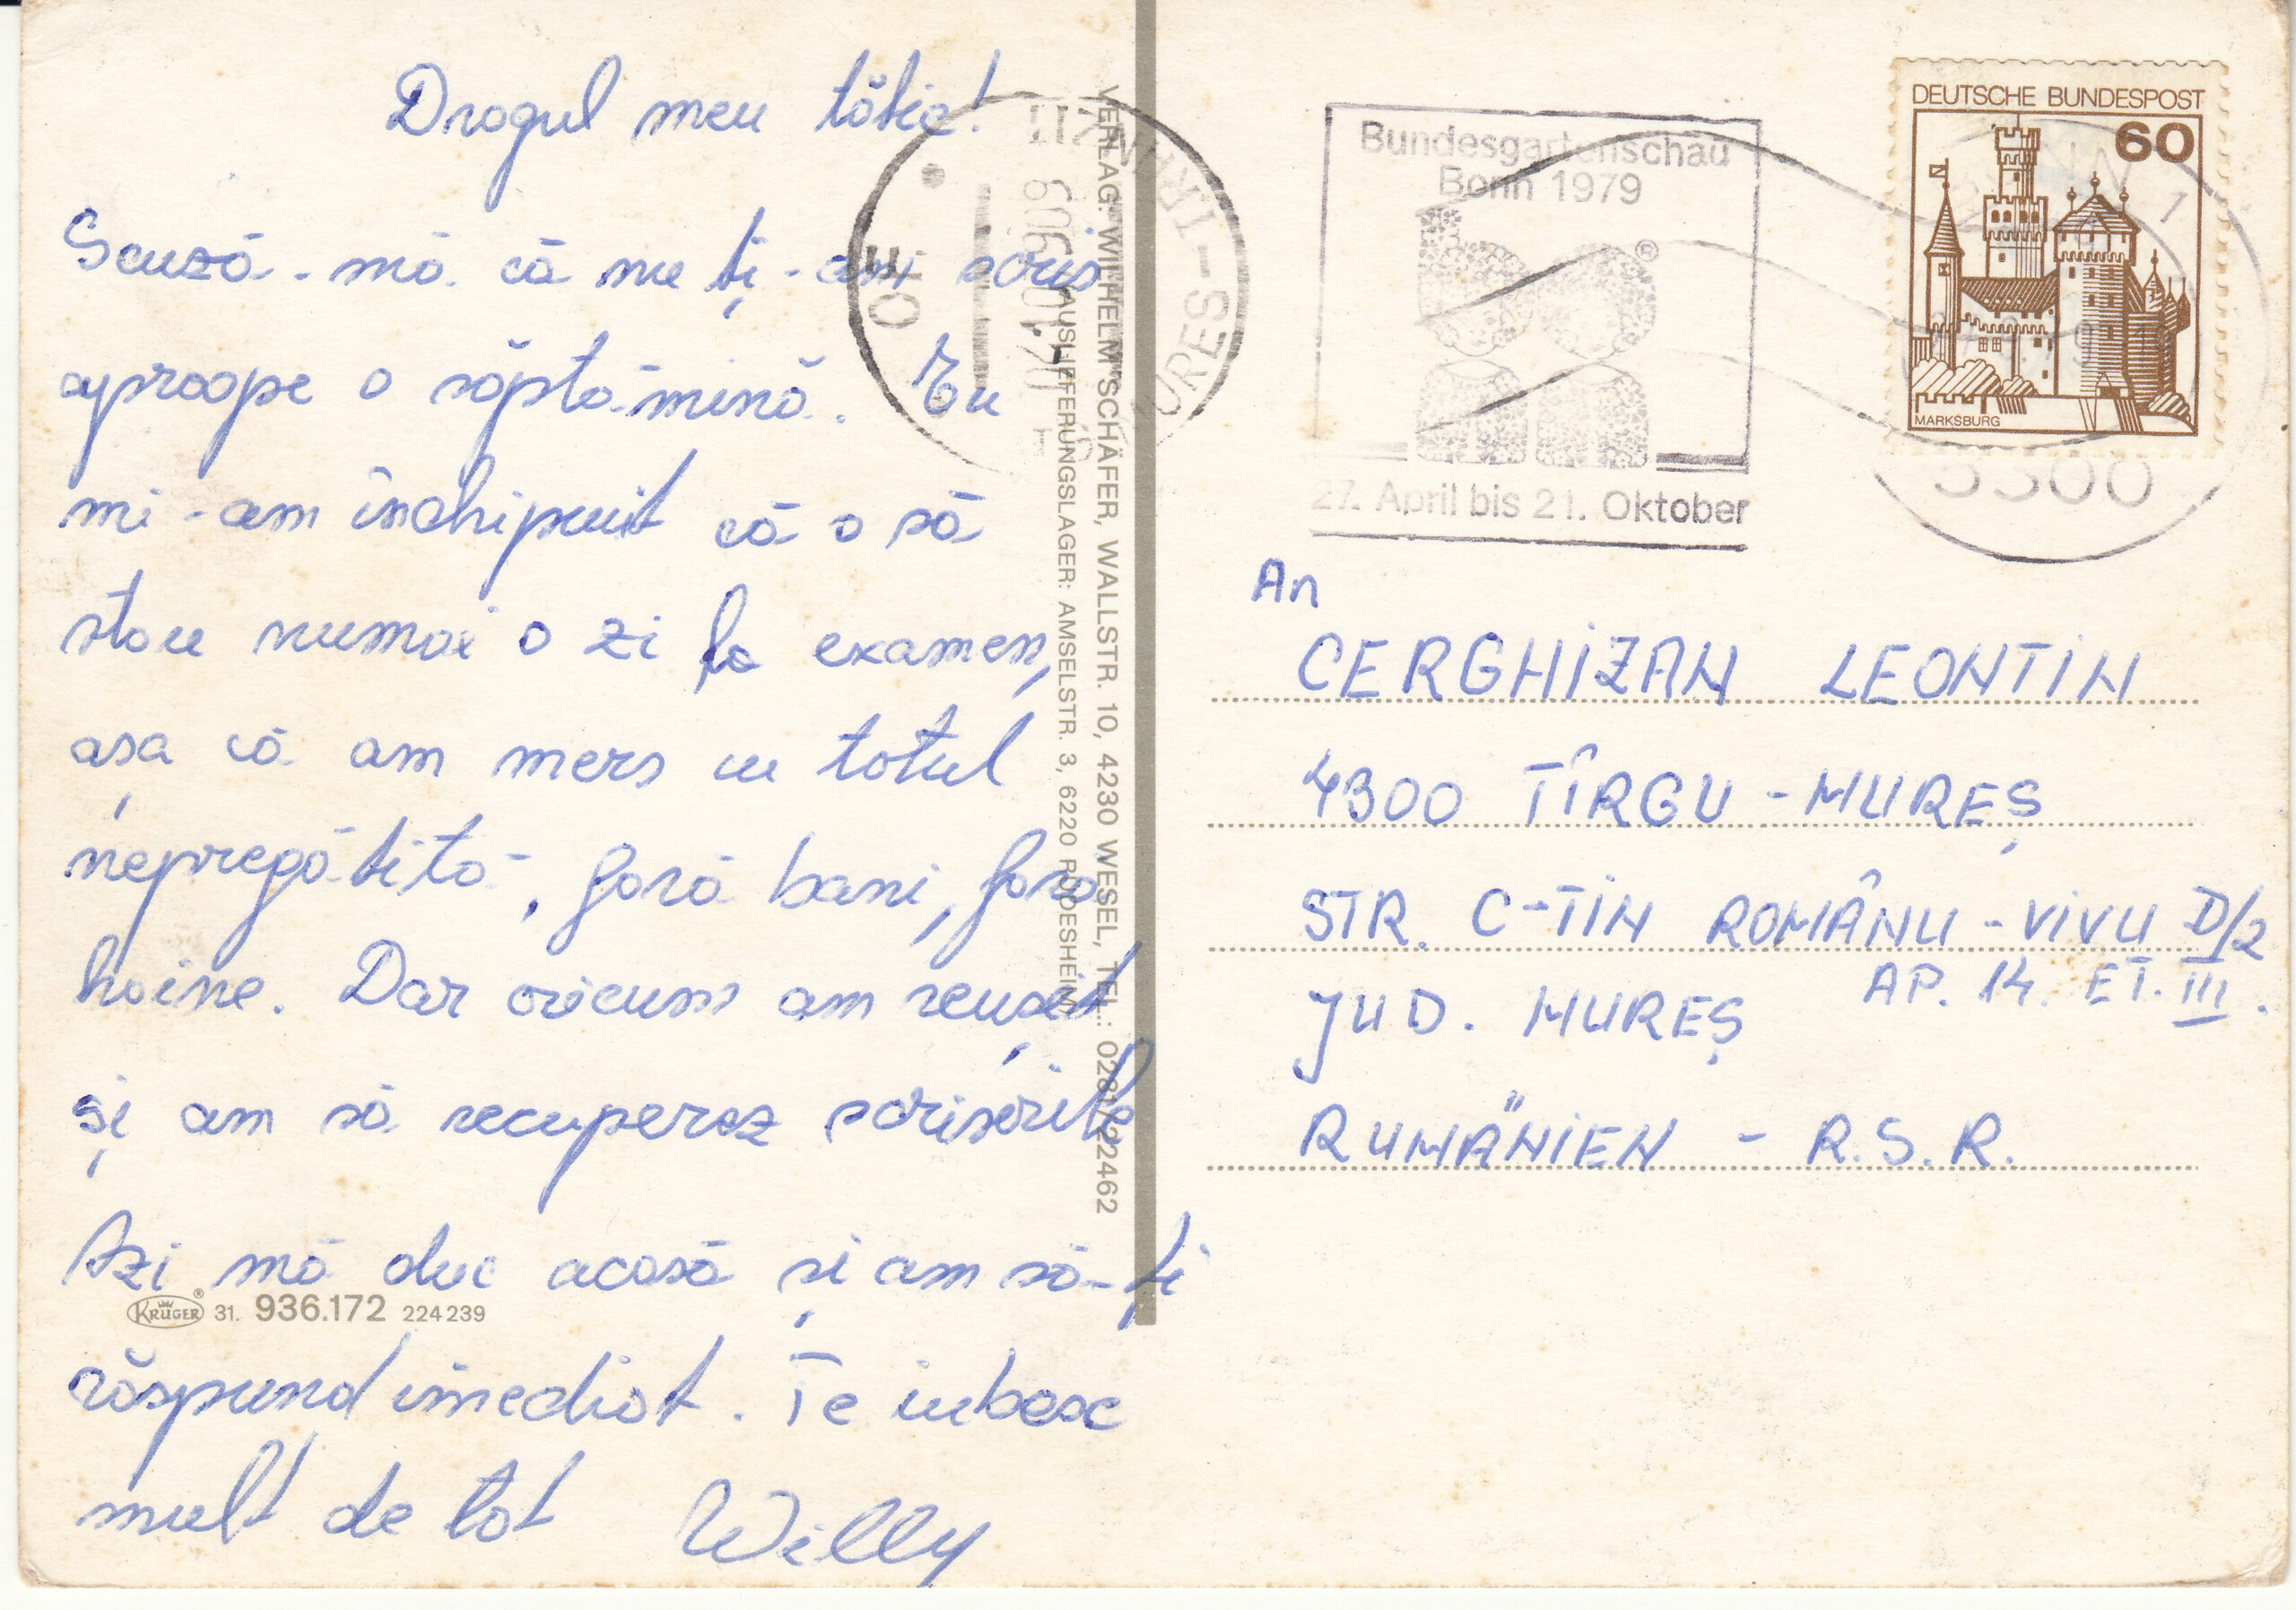 Dragul meu tătic!
Scuză-mă că nu ți-am scris
aproape o săptămînă. Eu
mi-am închipuit că o să
stau numai o zi la examen,
așa că am mers cu totul
nepregătită, fără bani, fără
haine. Dar oricum am reușit
și am să recuperez scrisorile
Azi mă duc acasă și am să-ți
răspund imediat. Te iubesc
mult de tot Willy
KRÜGER® 31. 936.172 224 239
VERLAG: WILHELM SCHÄFER, WALLSTR. 10, 4230 WESEL, TEL.: 0281/22462
AUSLIEFERUNGSLAGER: AMSELSTR. 3, 6220 RÜDESHEIM
MUREȘ
Bundesgartenschau
Bonn 1979
®
27. April bis 21. Oktober
DEUTSCHE BUNDESPOST
60
MARKSBURG
5300
An
CERGHIZAN LEONTIN
4300 TÎRGU-MUREȘ
STR. C-TIN ROMÂNU-VIVU D/2
AP. 14. ET. III.
JUD. MUREȘ
RUMÄNIEN - R.S.R.